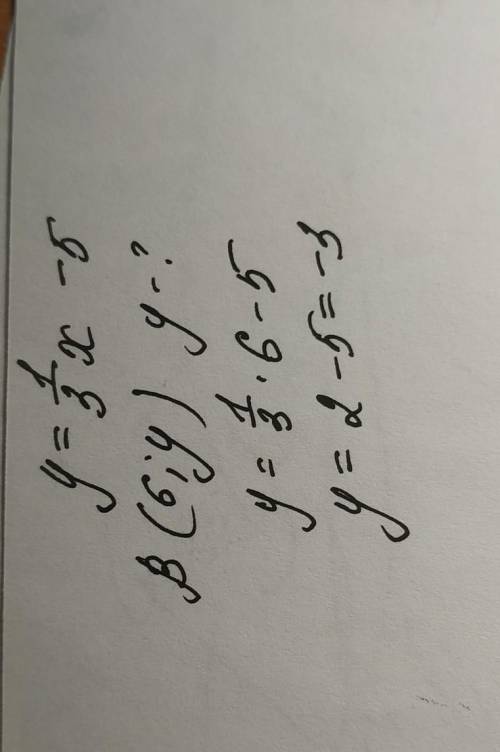 y = 1/3 x - 5
B (6; y) y - ?
y = 1/3 · 6 - 5
y = 2 - 5 = -3